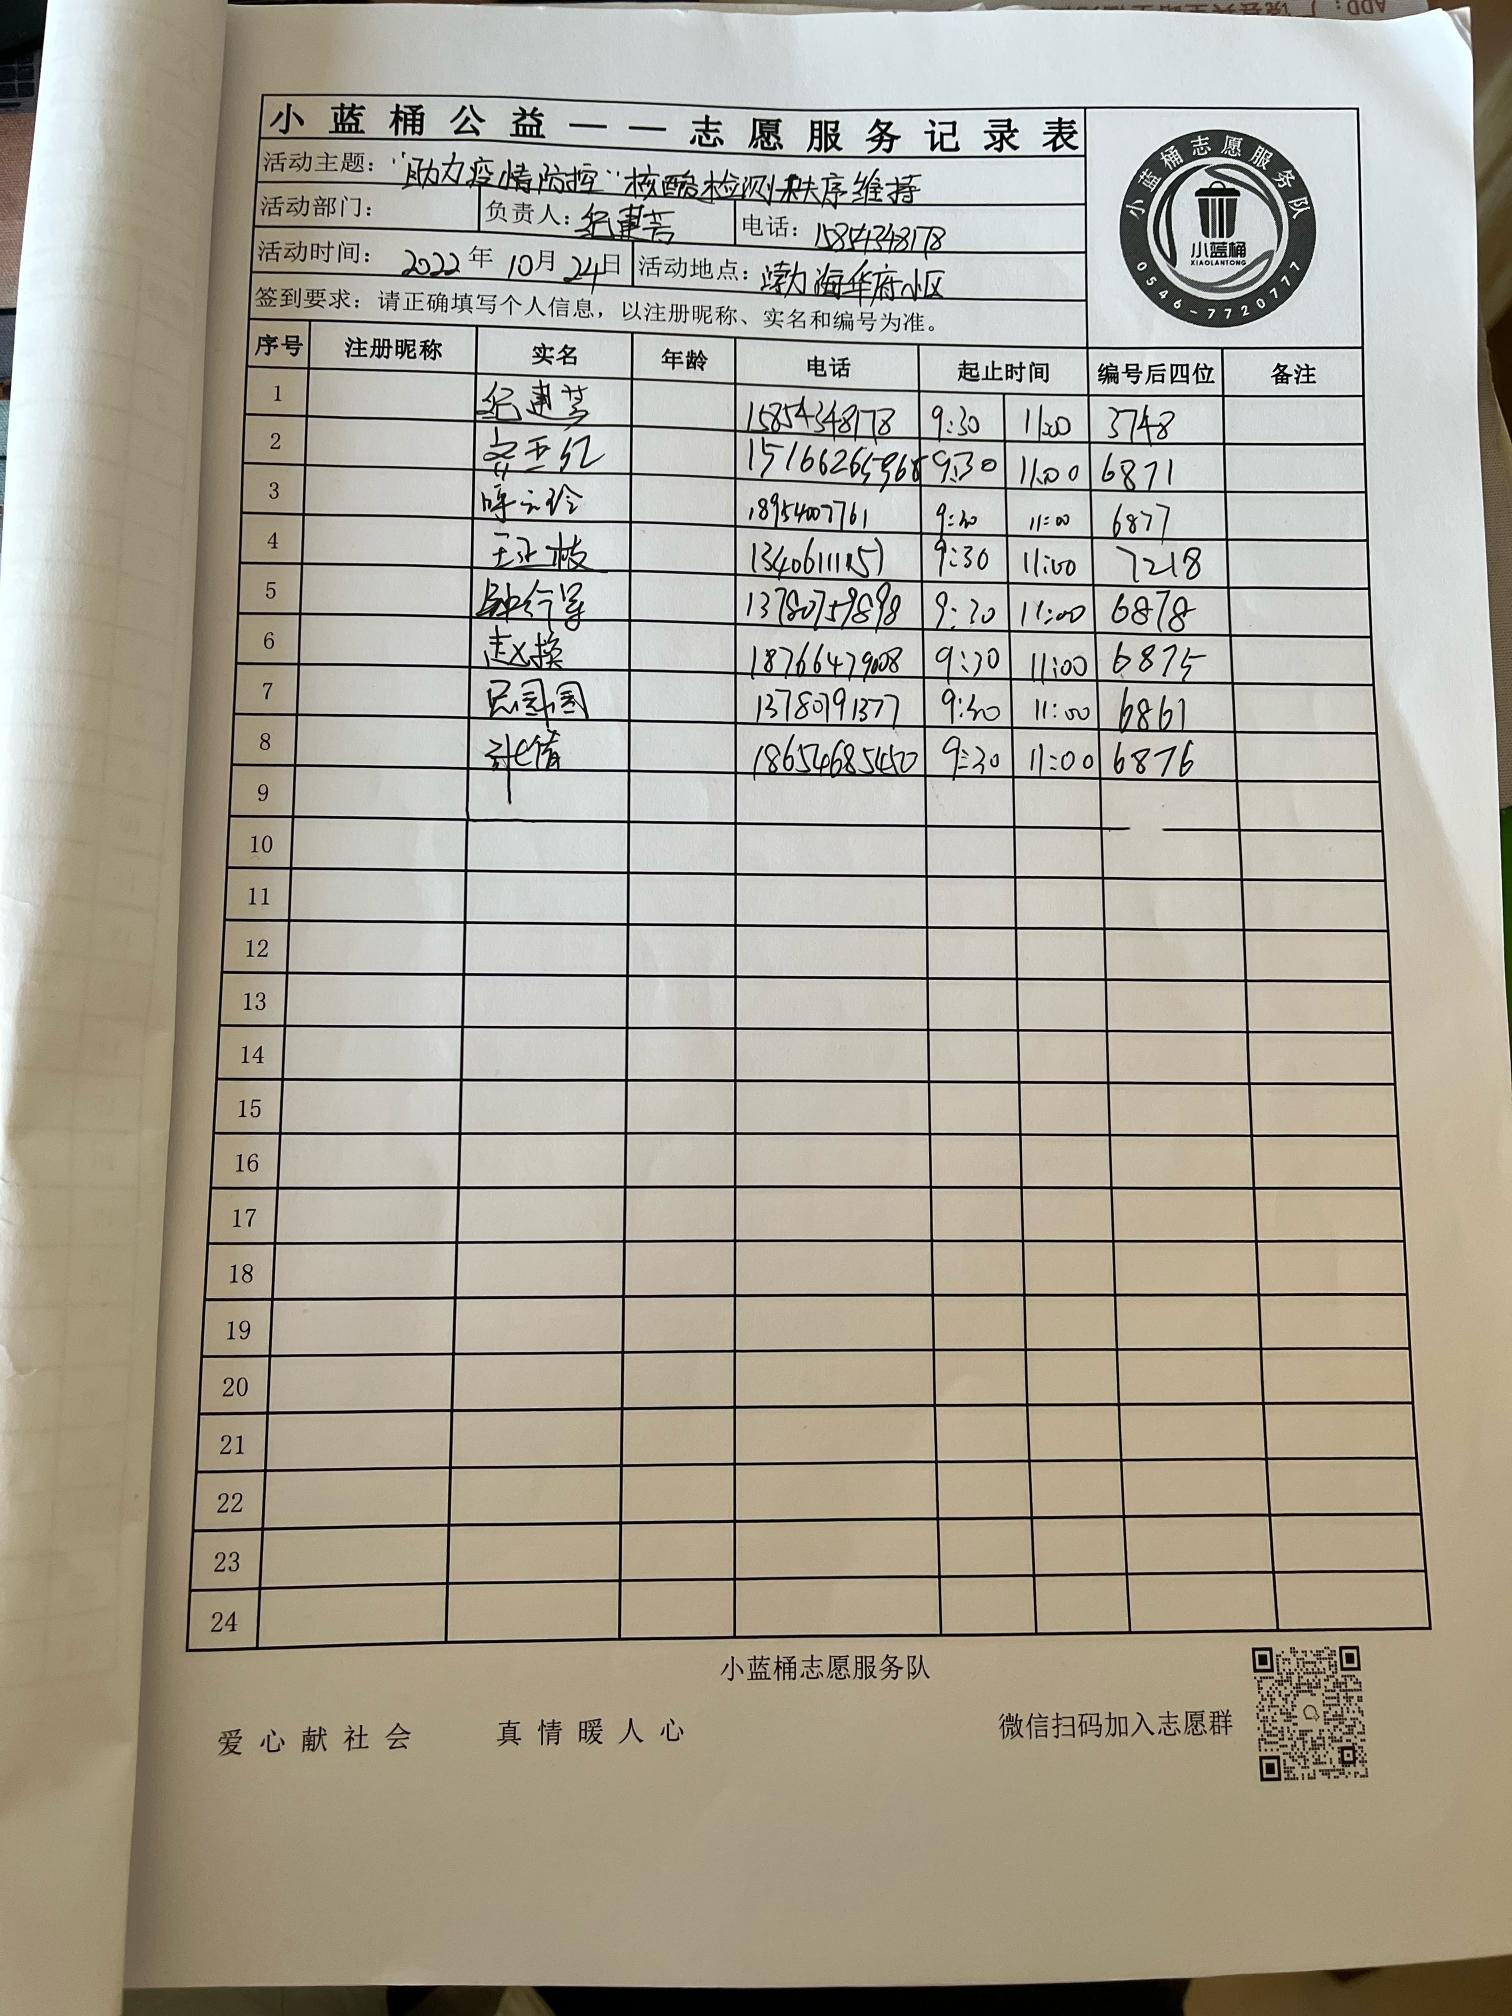 小蓝桶公益——志愿服务记录表
活动主题："助力疫情防控"核酸检测秩序维持
活动部门： 负责人：纪建芳 电话：15854348178
活动时间：2022年10月24日 活动地点：渤海华府小区
签到要求：请正确填写个人信息，以注册昵称、实名和编号为准。
小蓝桶志愿服务队
小蓝桶
XIAOLANTONG
0546-7720777
序号 注册昵称 实名 年龄 电话 起止时间 编号后四位 备注
1 纪建芳 15854348178 9:30 11:00 3748
2 15166265968 9:30 11:00 6871
3 18954007761 9:30 11:00 6877
4 9:30 11:00 7218
5 13780759898 9:30 11:00 6878
6 赵焕 18766479008 9:30 11:00 6875
7 13780791377 9:30 11:00 6861
8 张倩 18654685450 9:30 11:00 6876
9
10
11
12
13
14
15
16
17
18
19
20
21
22
23
24
小蓝桶志愿服务队
爱心献社会 真情暖人心 微信扫码加入志愿群